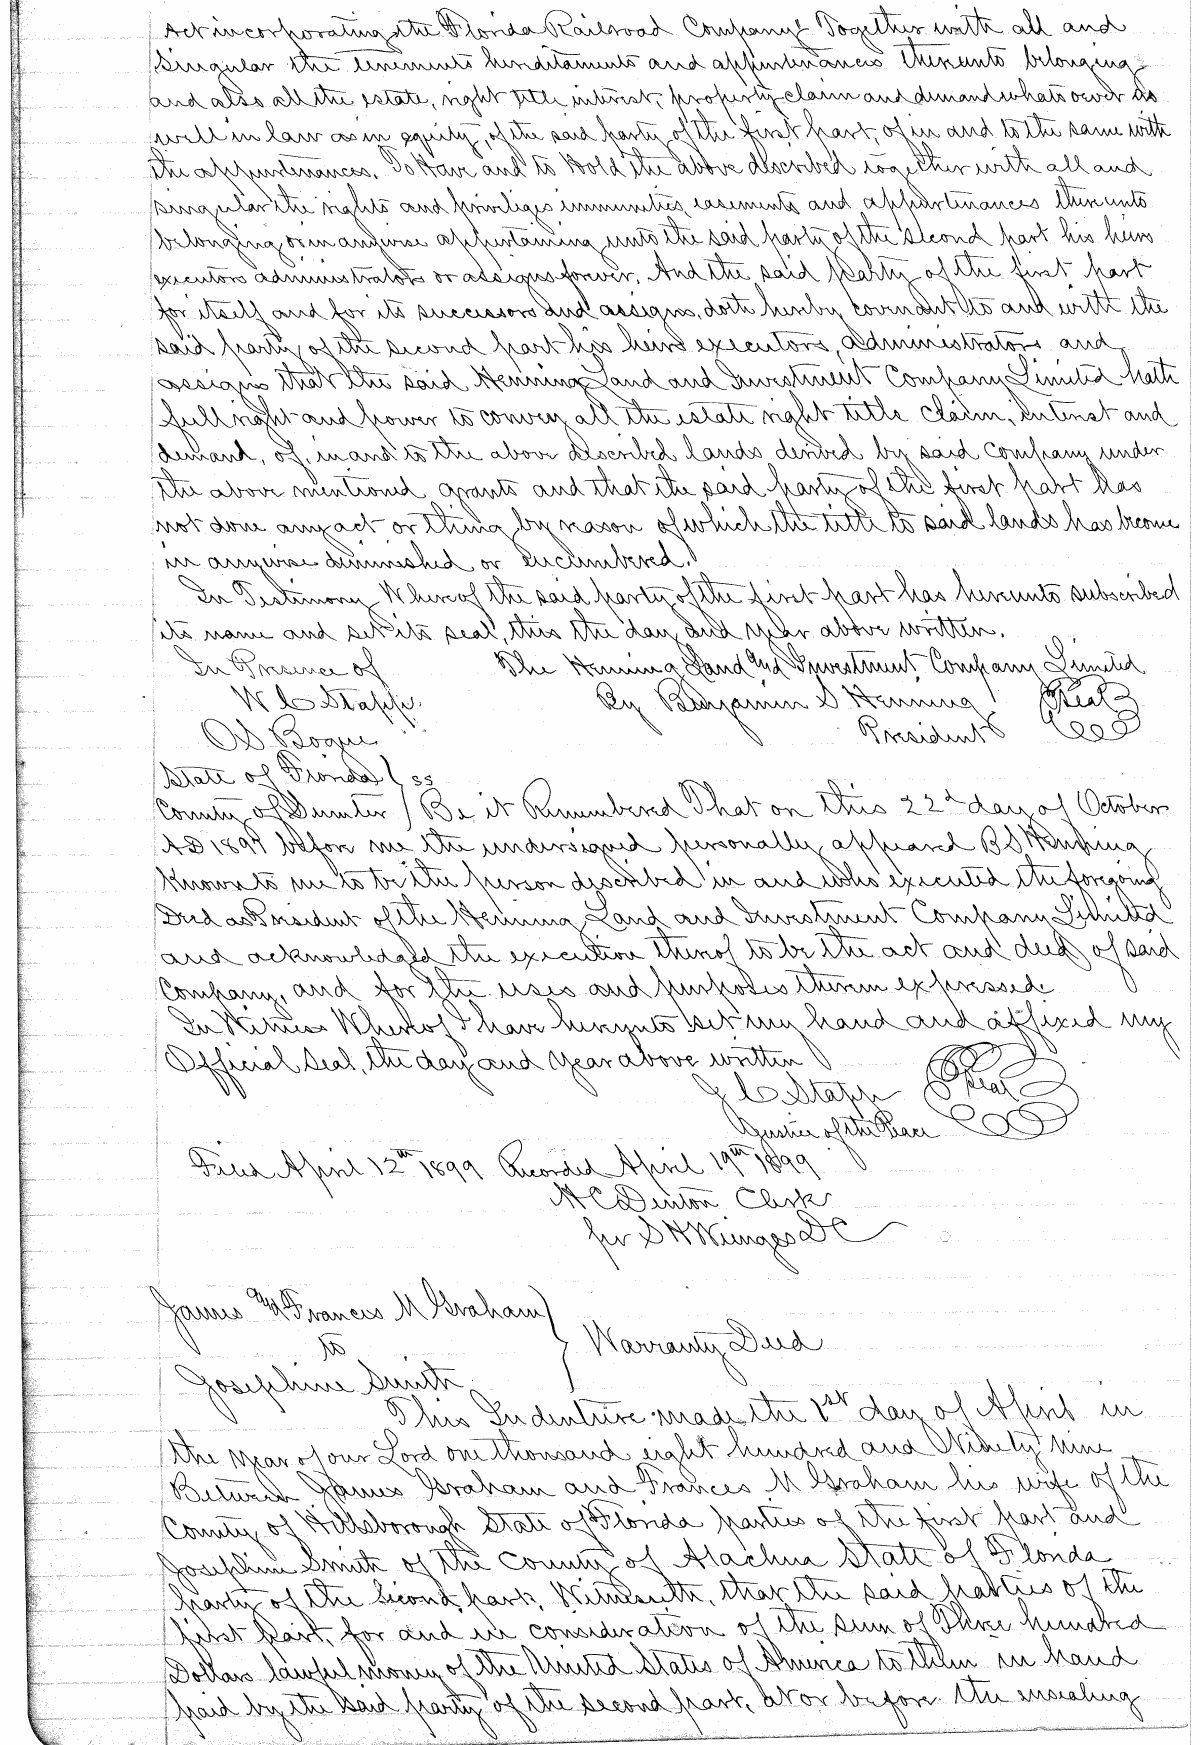 Act incorporating the Florida Railroad Company Together with all and
Singular the tenements hereditaments and appurtenances thereunto belonging
and also all the estate, right title interest, property claim and demand whatsoever as
well in law as in equity, of the said party of the first part, of in and to the same with
the appurtenances. To Have and to Hold the above described together with all and
singular the rights and priviliges immunities, easements and appurtenances thereunto
belonging or in anywise appertaining unto the said party of the second part his heirs
executors administrators or assigns forever. And the said Party of the first part
for itself and for its successors and assigns, doth hereby covenant to and with the
said party of the second part his heirs executors, administrators and
assigns that the said Henning Land and Investment Company Limited hath
full right and power to convey all the estate right title claim, interest and
demand, of, in and to the above described lands derived by said Company under
the above mentioned grants and that the said party of the first part has
not done any act or thing by reason of which the title to said lands has become
in anywise diminished or encumbered.
In Testimony Whereof the said party of the first part has hereunto subscribed
its name and set its seal, this the day and year above written.
In Presence of The Henning Land and Investment Company Limited
W C Stapp. By Benjamin S Henning Seal
O S Bogue President
State of Florida } ss
County of Sumter } Be it Remembered That on this 22d day of October
A D 1897 before me the undersigned personally appeared B S Henning
known to me to be the person described in and who executed the foregoing
Deed as President of the Henning Land and Investment Company Limited
and acknowledged the execution thereof to be the act and deed of said
Company, and for the uses and purposes therein expressed.
In Witness Whereof I have hereunto set my hand and affixed my
Official Seal, the day and year above written
C Stapp Seal
Justice of the Peace
Filed April 12th 1899 Recorded April 19th 1899
H C Denton Clerk
per S H Wienges D C
James and Francis M Graham }
to } Warranty Deed
Josephine Smith
This Indenture made the 1st day of April in
the year of our Lord one thousand eight hundred and Ninety nine
Between James Graham and Frances M Graham his wife of the
County of Hillsborough State of Florida parties of the first part and
Josephine Smith of the County of Alachua State of Florida
party of the second part, Witnesseth, that the said parties of the
first part, for and in consideration of the sum of Three hundred
Dollars lawful money of the United States of America to them in hand
paid by the said party of the second part, at or before the ensealing